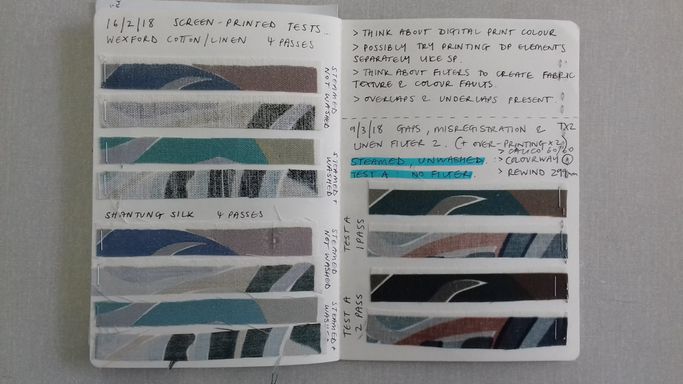 16/2/18 SCREEN-PRINTED TESTS...
WEXFORD COTTON/LINEN 4 PASSES
STEAMED
NOT WASHED
STEAMED +
WASHED
SHANTUNG SILK 4 PASSES
STEAMED
NOT WASHED
STEAMED +
> THINK ABOUT DIGITAL PRINT COLOUR
> POSSIBLY TRY PRINTING DP ELEMENTS
SEPARATELY LIKE SP.
> THINK ABOUT FILTERS TO CREATE FABRIC
TEXTURE & COLOUR FAULTS.
> OVERLAPS & UNDERLAPS PRESENT.
9/3/18 GAPS, MISREGISTRATION & TX2
LINEN FILTER 2. (+ OVER-PRINTING X2)
> CALICO 60/60
STEAMED, UNWASHED. > COLOURWAY A
TEST A NO FILTER. > REWIND
TEST A
1 PASS
TEST A
2 PASS